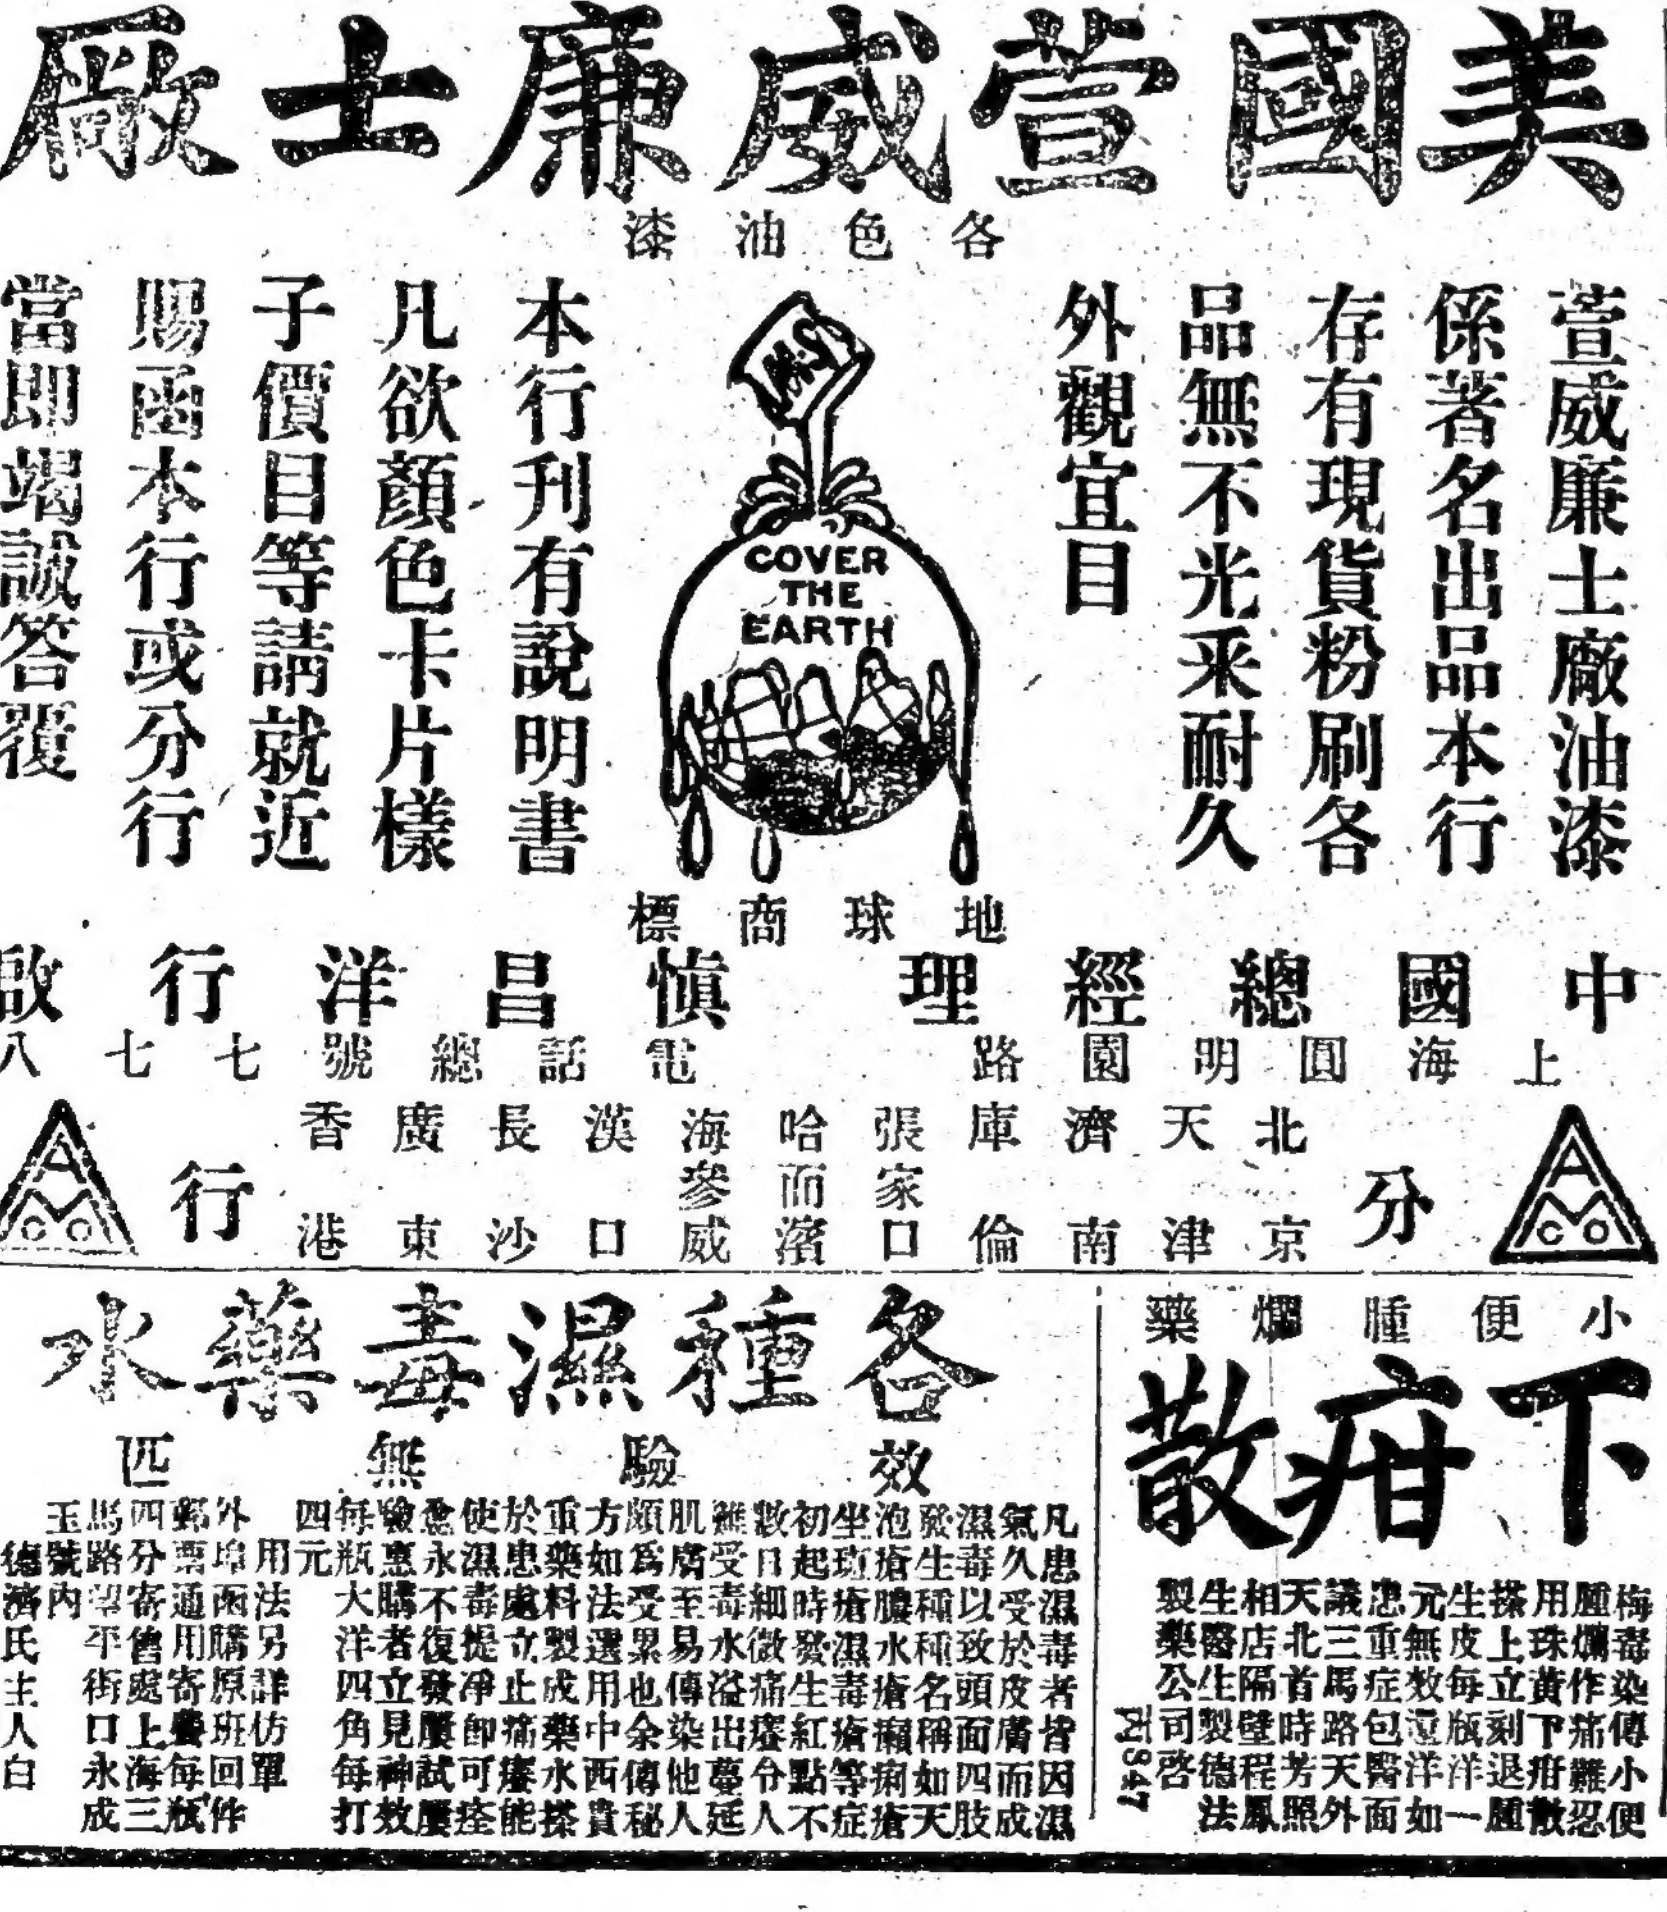 美國萱威廉士廠
各色油漆
萱威廉士廠油漆
係著名出品本行
存有現貨粉刷各
品無不光采耐久
外觀宜目
COVER
THE
EARTH
本行刊有說明書
凡欲顏色卡片樣
子價目等請就近
賜函本行或分行
當即竭誠答覆
地球商標
中國總經理 慎昌洋行啟
上海圓明園路 電話總號七七八
AM
CO
分行
北京
天津
濟南
庫倫
張家口
哈而濱
海參威
漢口
長沙
廣東
香港
AM
CO
小便腫爛藥
下疳散
梅毒染傳小便
腫爛作痛難忍
用珠黃下疳散
搽上立刻退腫
生皮每瓶洋一
元無效還洋如
患重症包醫面
議三馬路天外
天北首時芳照
相店隔壁程鳳
生醫生製德法
製藥公司啓
各種濕毒藥水
效驗無匹
凡患濕毒者皆因濕
氣久受於皮膚而成
濕毒以致頭面四肢
發生種種名稱如天
泡瘡膿水瘡癩痢瘡
坐斑瘡濕毒瘡等症
初起時發生紅點不
數日細微痛癢令人
難受毒水溢出蔓延
肌膚至易傳染他人
頗為受累也余傳秘
方如法選用中西貴
重藥料製成藥水搽
於患處立止痛癢能
使濕毒提凈卽可痊
愈永不復發屢試屢
驗惠購者立見神效
每瓶大洋四角每打
四元
用法另詳仿單
外埠函購原班回件
郵票通用寄費每瓶
四分寄售處上海三
馬路望平街口永成
玉號內
德濟氏主人白